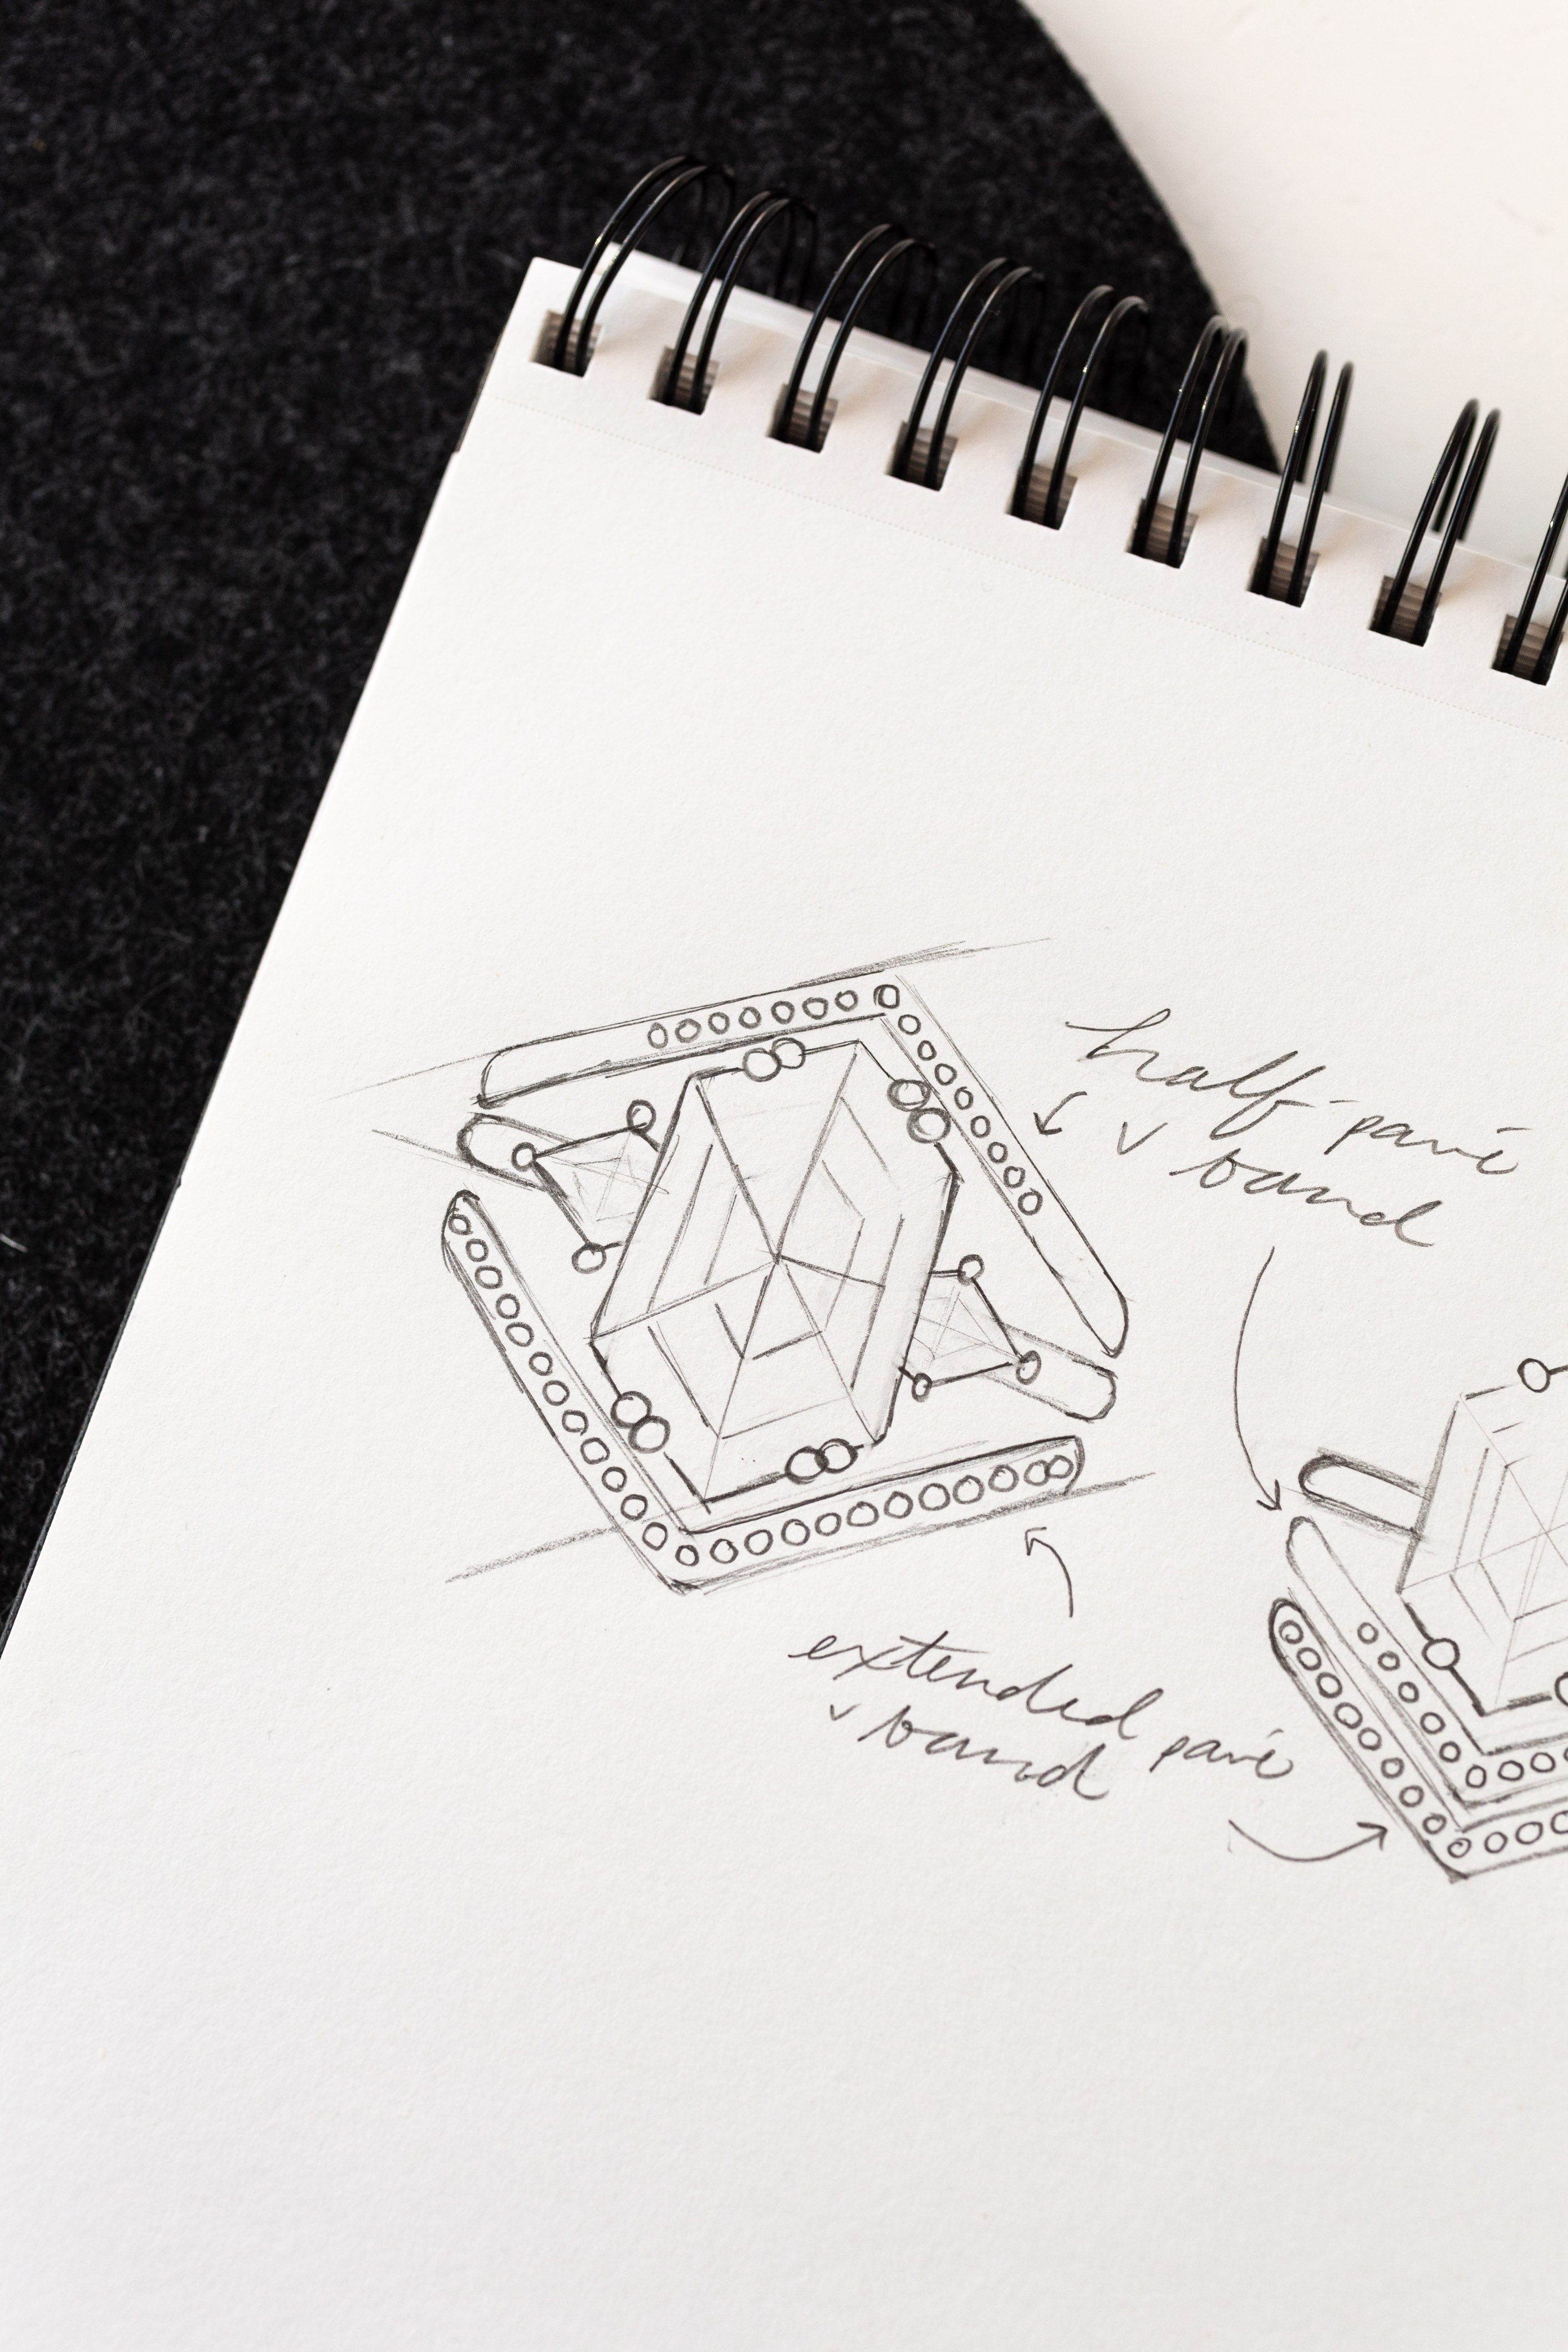 half-pavé
v band
extended pavé
v band